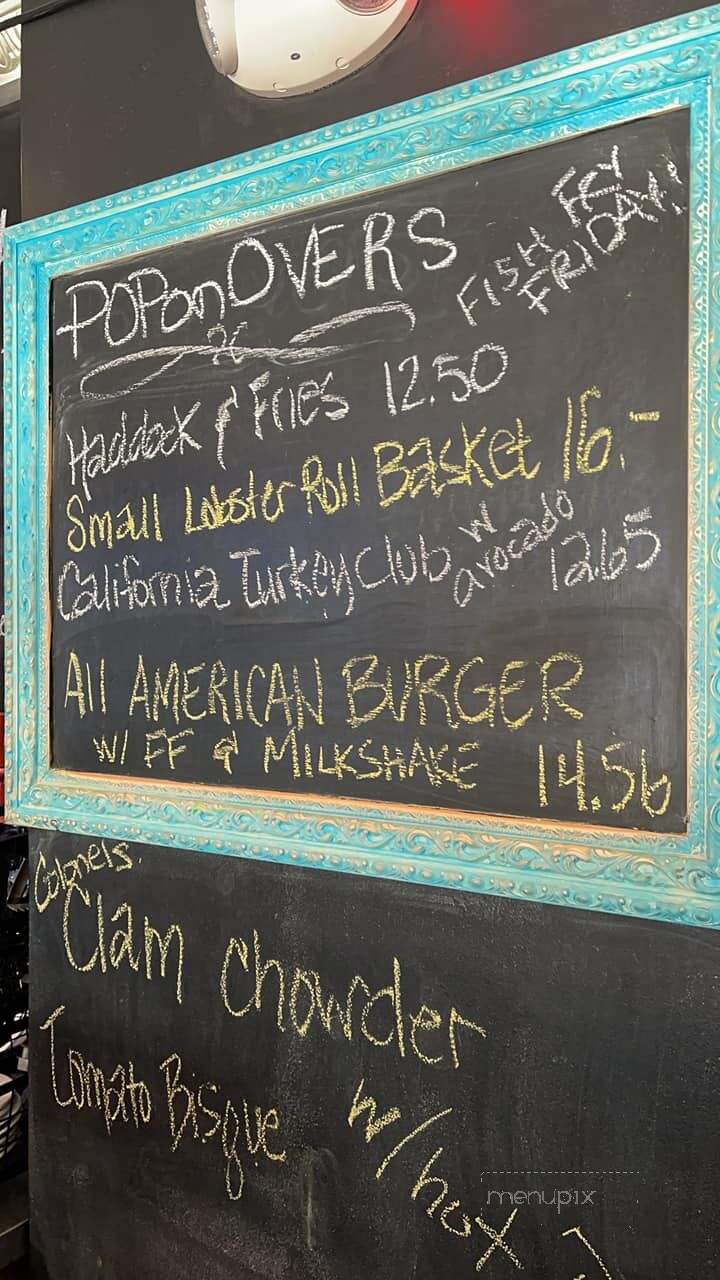 POPonOVERS
FISH FRY
FRIDAY!
Haddock & Fries 12.50
Small Lobster Roll Basket 16.-
California Turkey Club w avocado 12.65
All AMERICAN BURGER
W/ FF & MILKSHAKE 14.56
Colonels
Clam Chowder
Tomato Bisque
w/
menupix